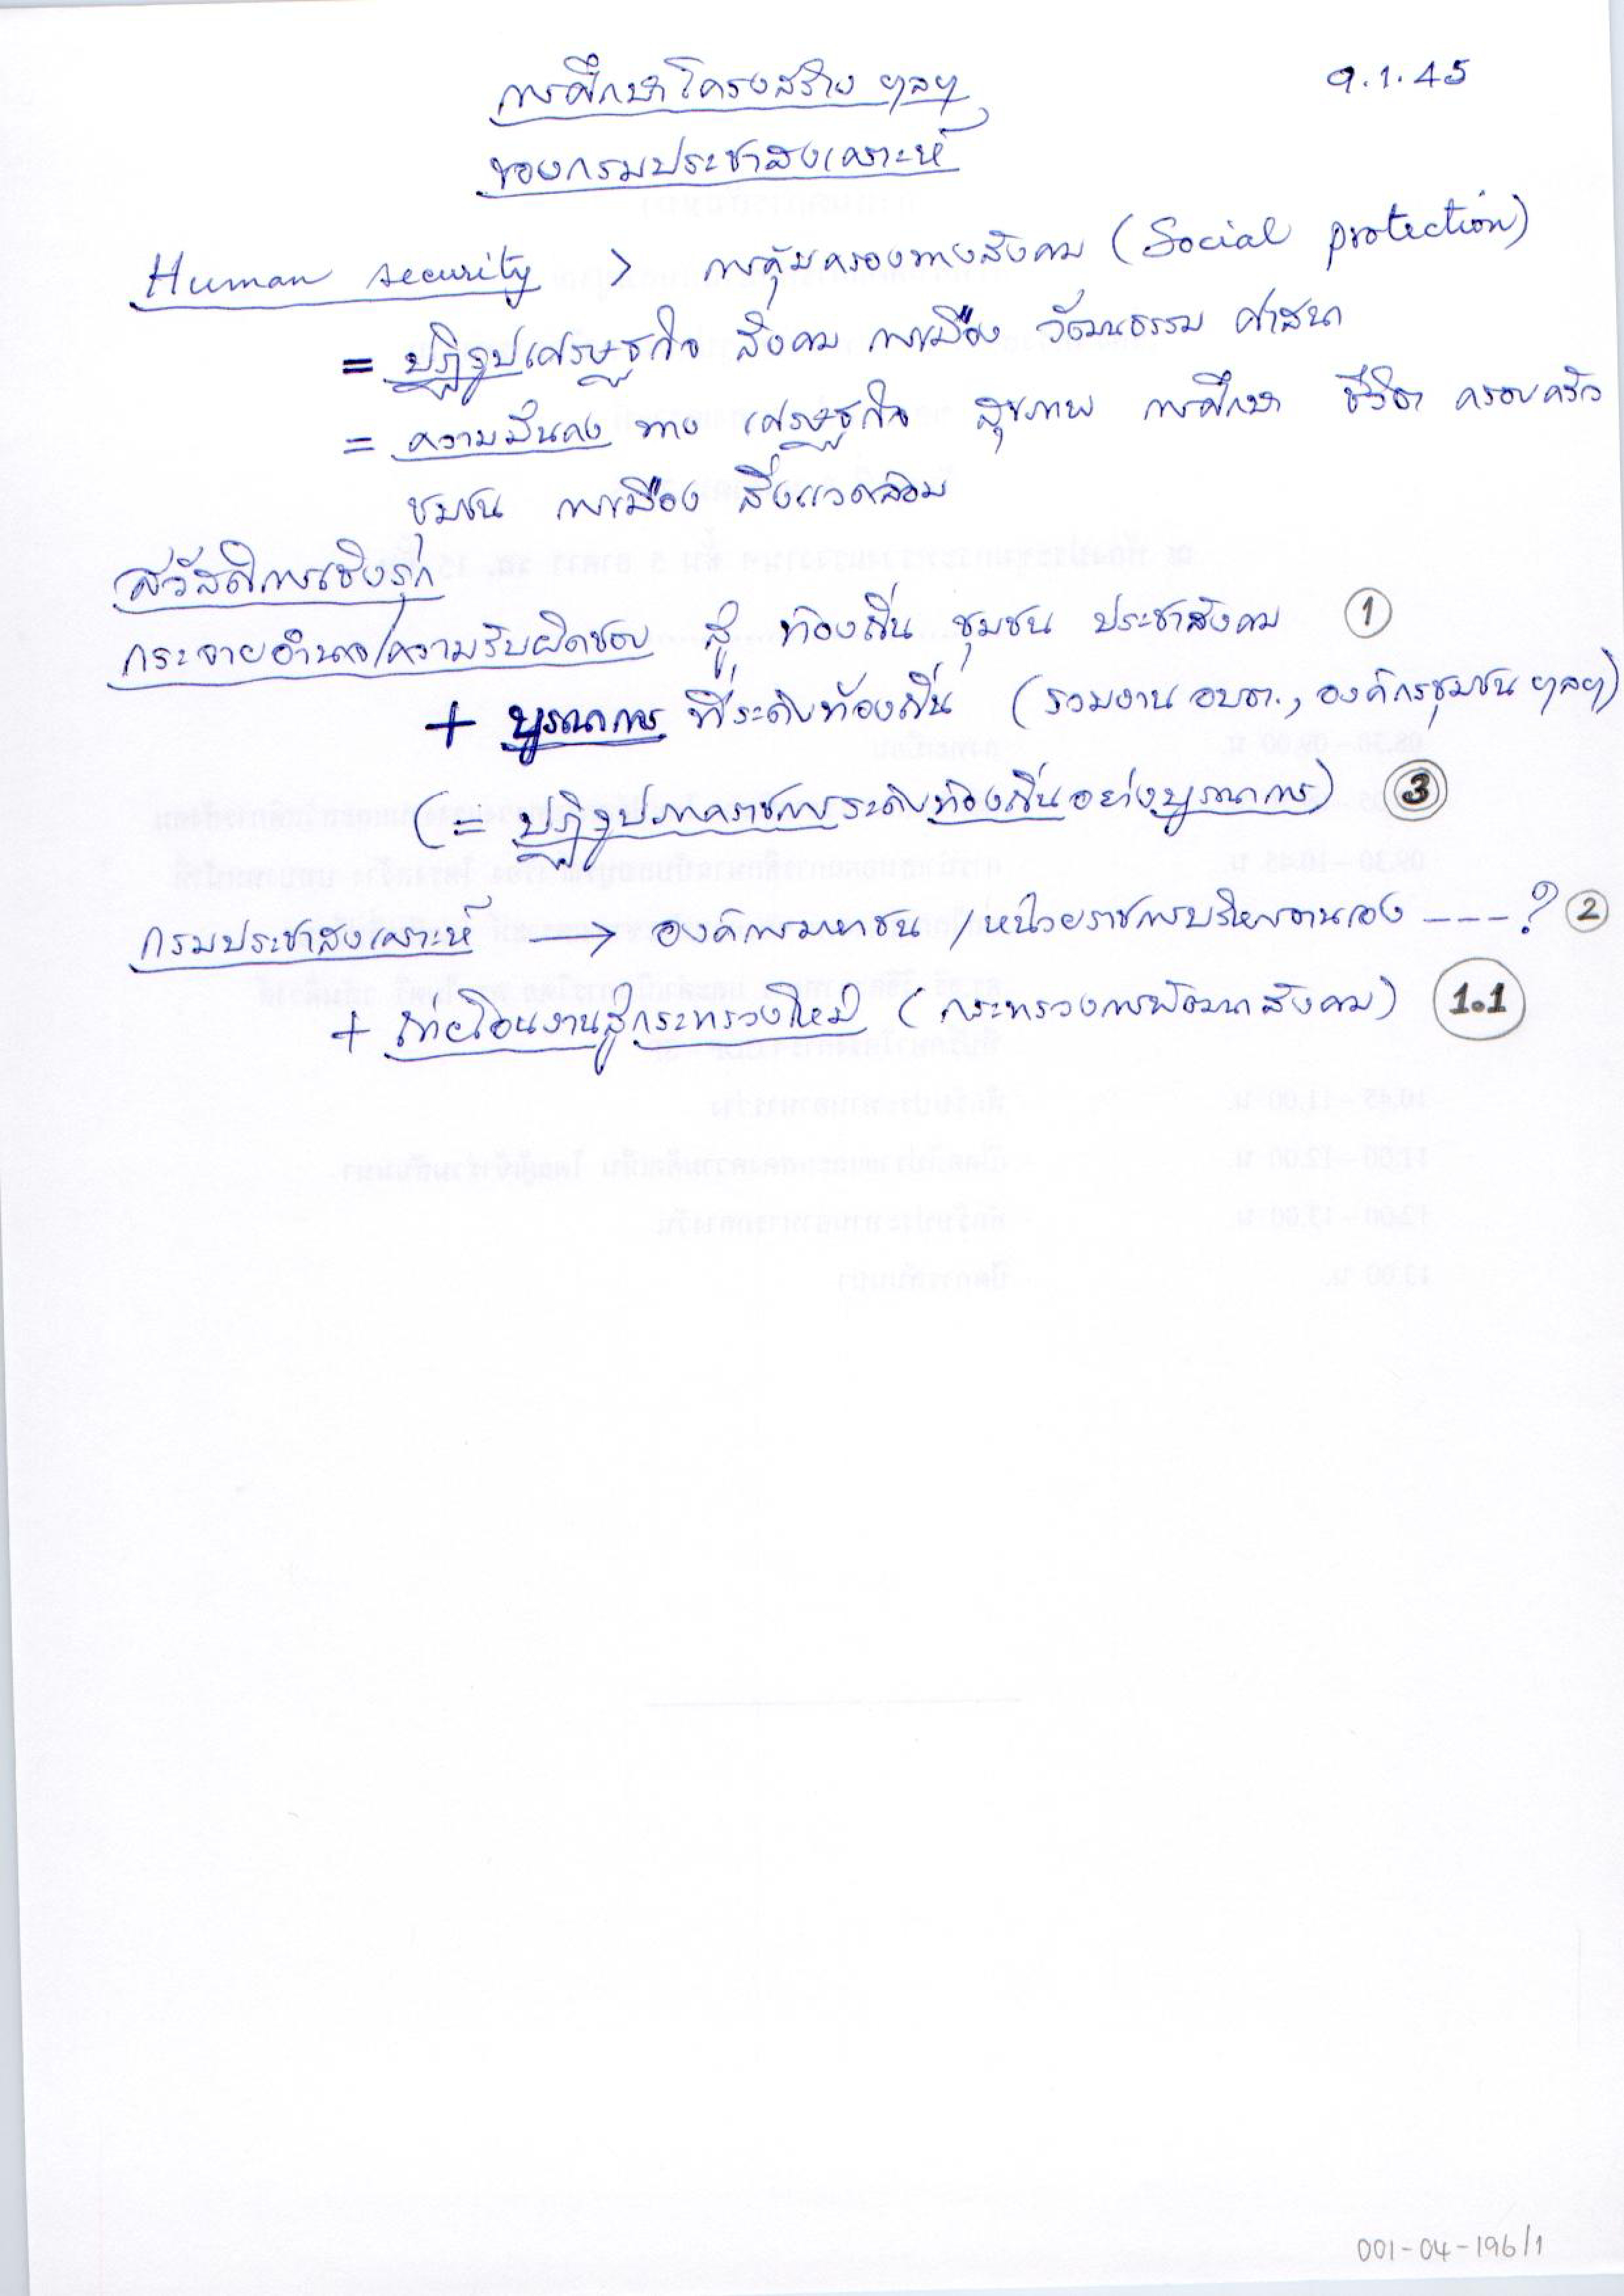 การศึกษาโครงสร้าง ฯลฯ
9.1.45
ของกรมประชาสงเคราะห์
Human security > การคุ้มครองทางสังคม (Social protection)
= ปฏิรูปเศรษฐกิจ สังคม การเมือง วัฒนธรรม ศาสนา
= ความมั่นคง ทาง เศรษฐกิจ สุขภาพ การศึกษา ชีวิต ครอบครัว
ชุมชน การเมือง สิ่งแวดล้อม
สวัสดิการเชิงรุก
กระจายอำนาจ/ความรับผิดชอบ สู่ ท้องถิ่น ชุมชน ประชาสังคม 1
+ บูรณาการ ที่ระดับท้องถิ่น (รวมงาน อบต., องค์กรชุมชน ฯลฯ)
(= ปฏิรูปภาคราชการระดับท้องถิ่นอย่างบูรณาการ) 3
กรมประชาสงเคราะห์ → องค์การมหาชน / หน่วยราชการบริหารงานเอง ----? 2
+ ถ่ายโอนงานสู่กระทรวงใหม่ (กระทรวงการพัฒนาสังคม) 1.1
001-04-196/1